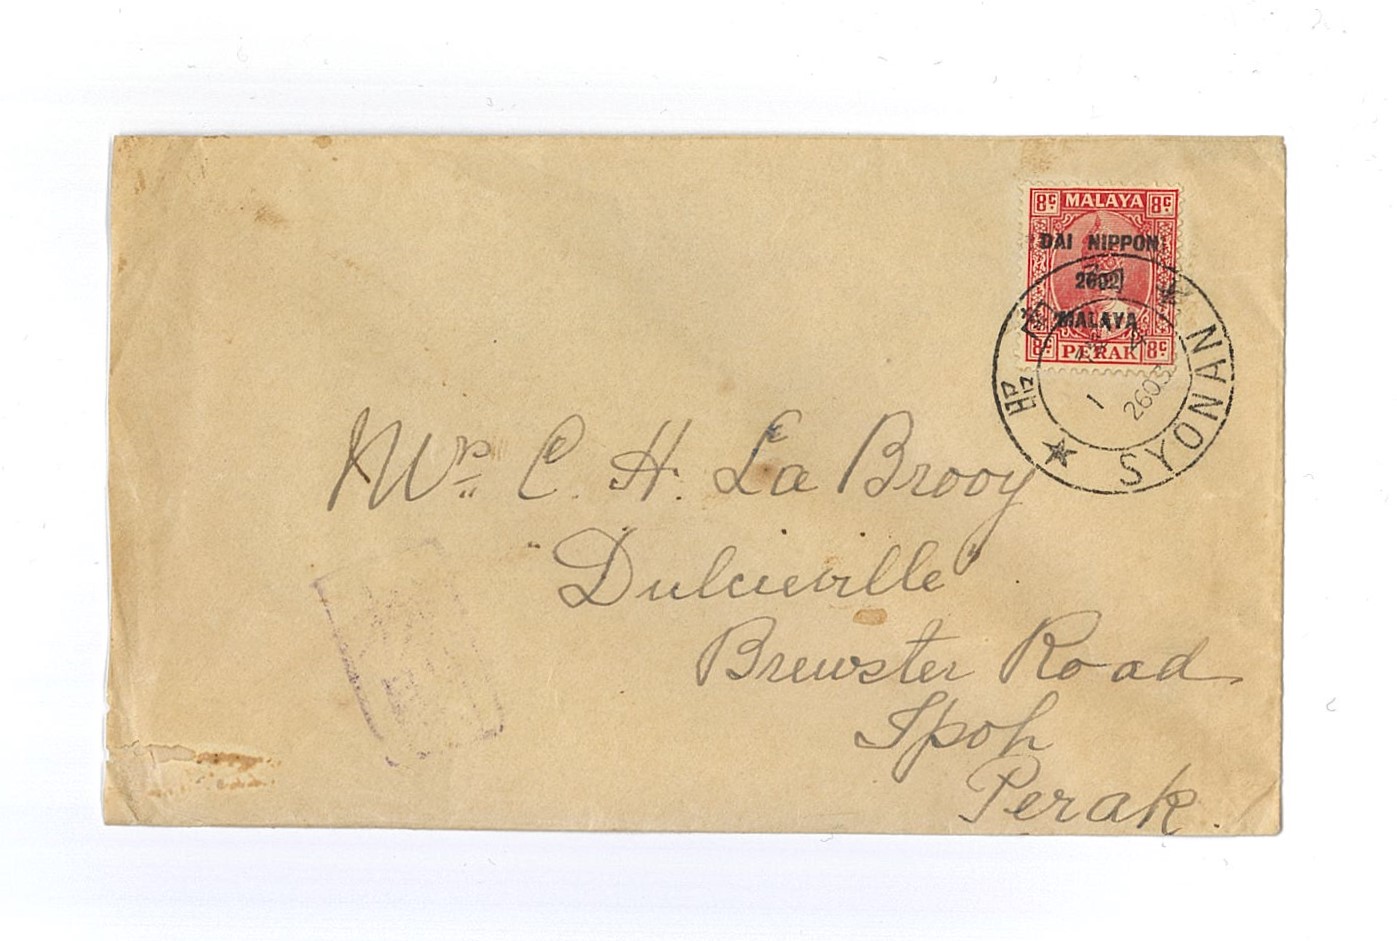 8c. MALAYA 8c.
DAI NIPPON
2602
MALAYA
8c. PERAK 8c.
昭南
SYONAN
1
2603
Mr. C. H. La Brooy
"Dulcieville"
Brewster Road
Ipoh
Perak.